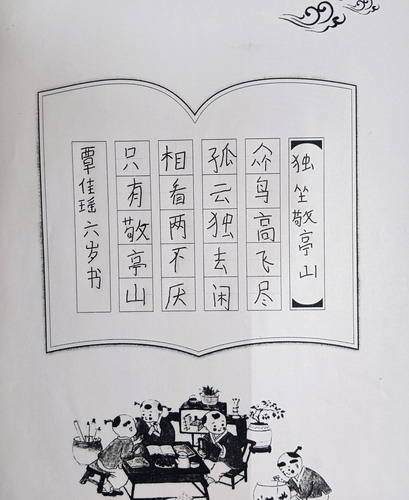 独坐敬亭山
众鸟高飞尽
孤云独去闲
相看两不厌
只有敬亭山
覃佳瑶六岁书